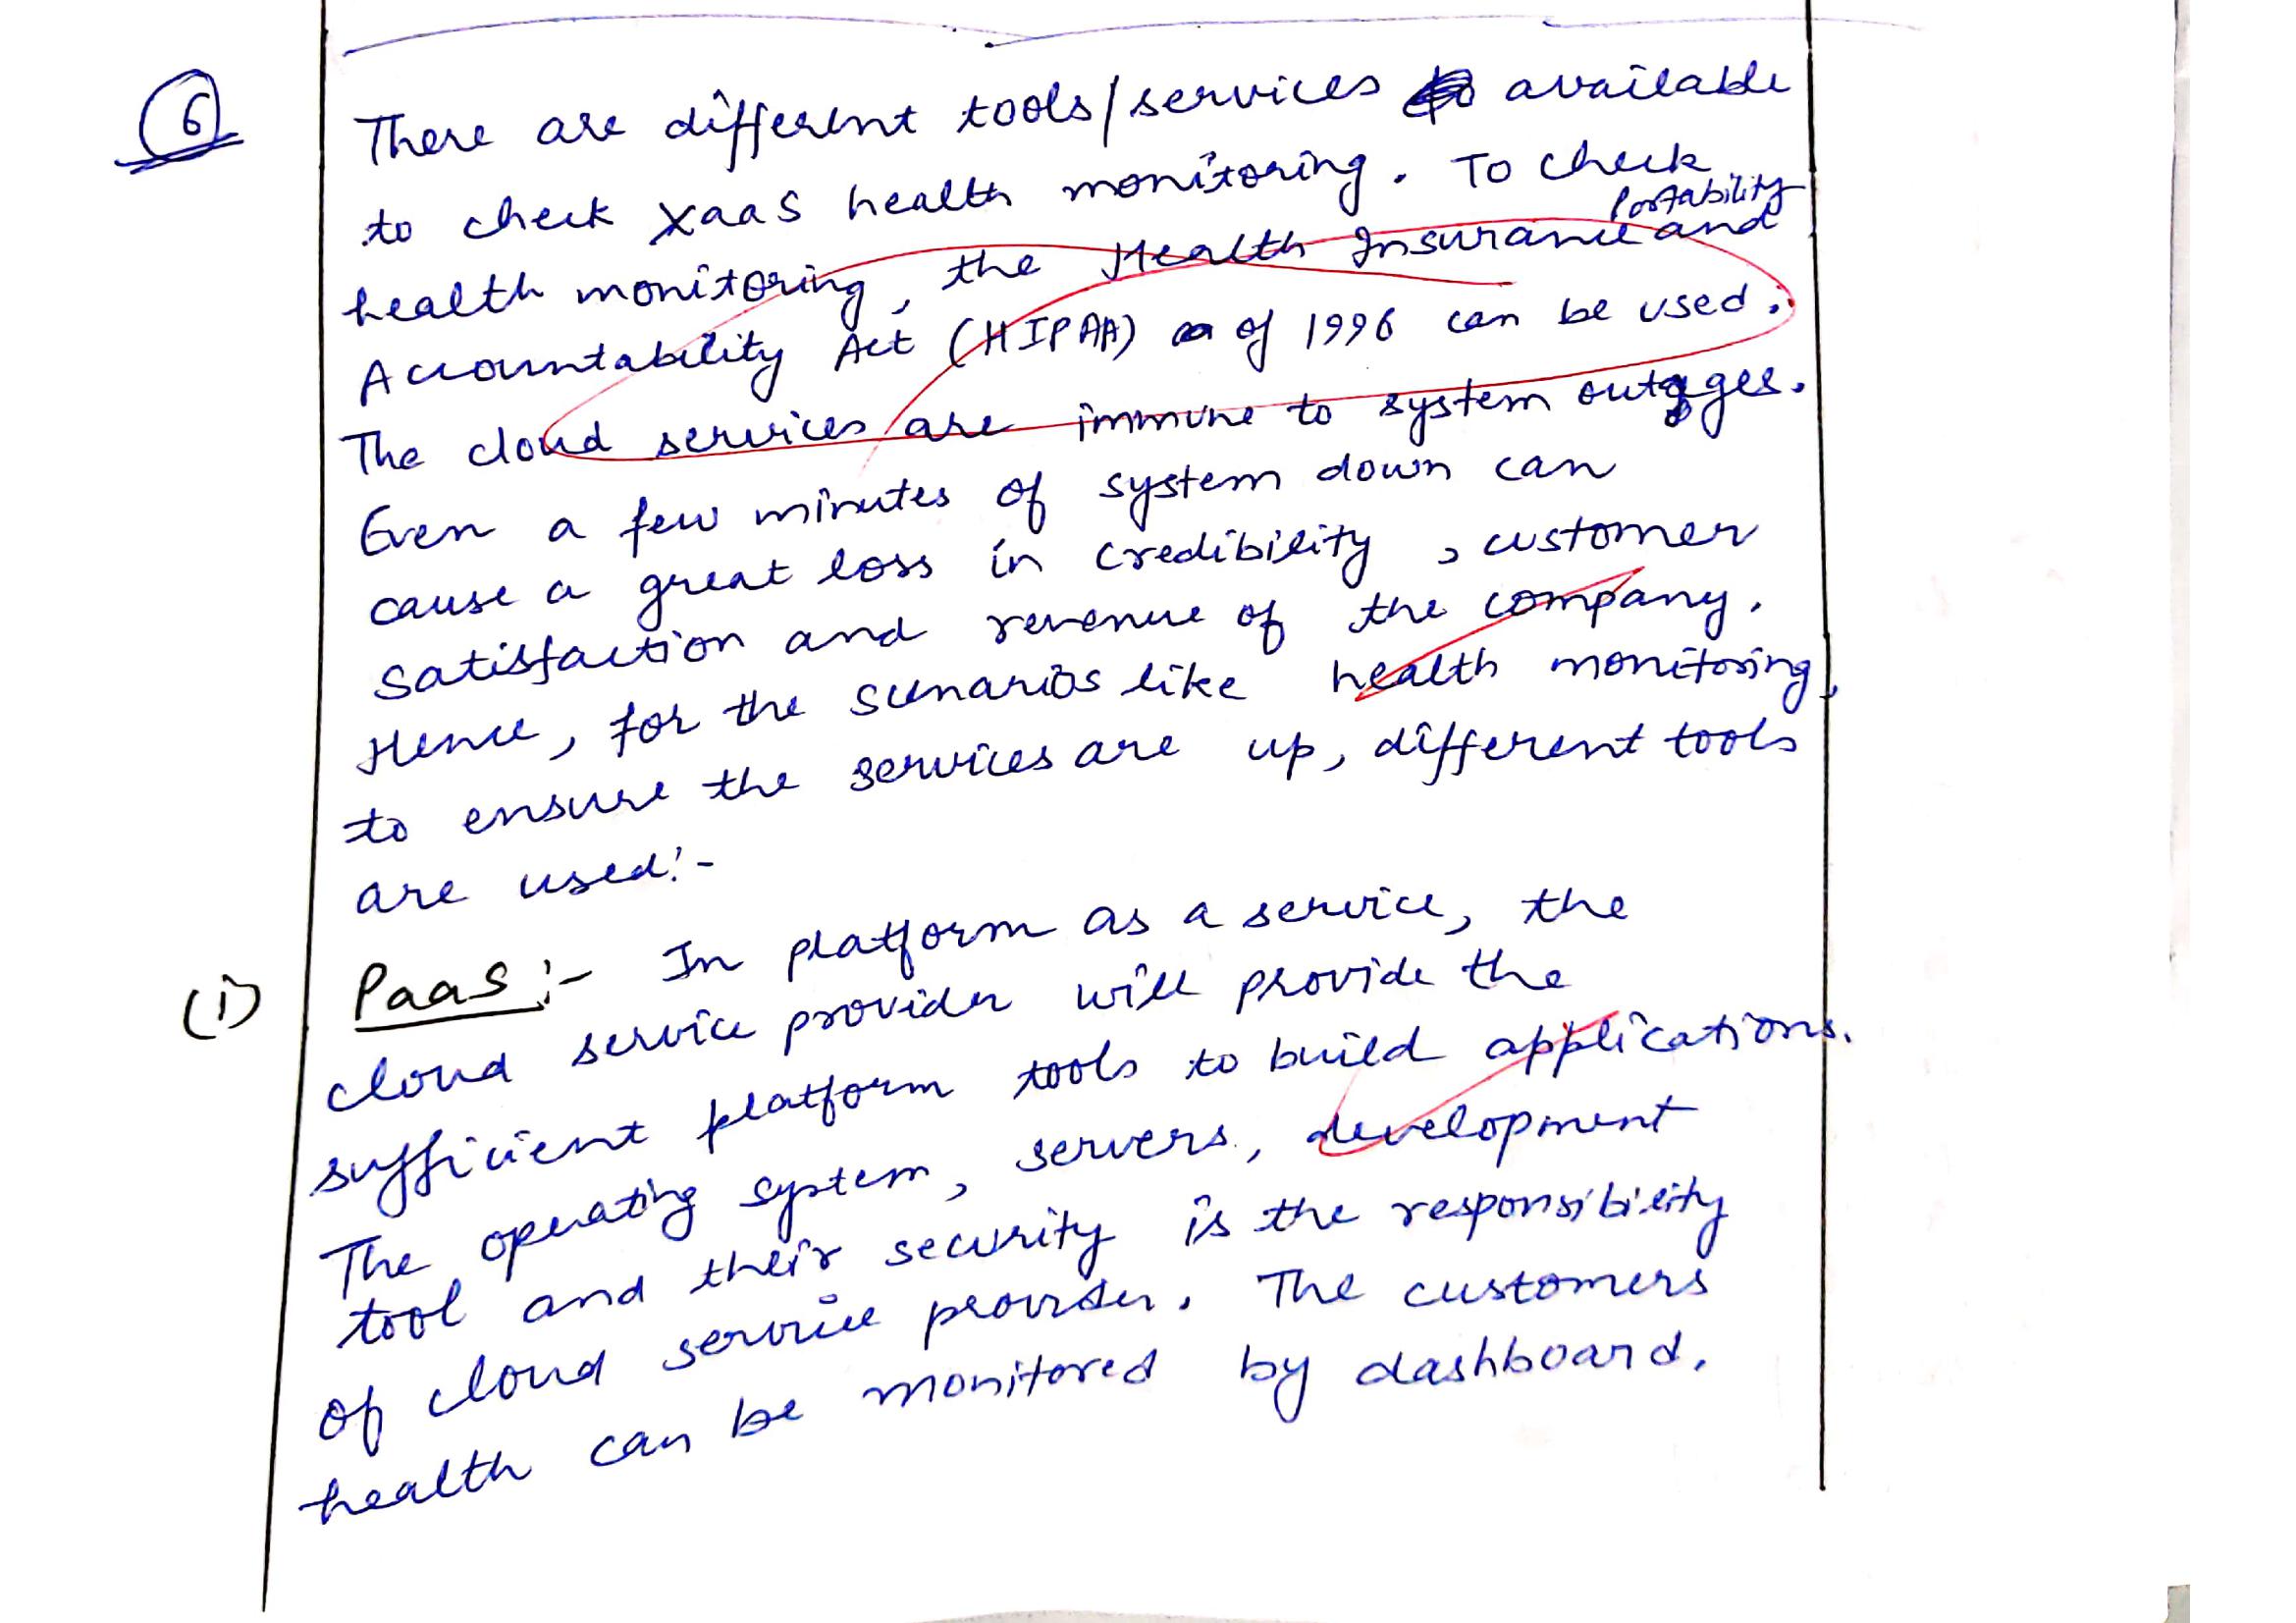 6
There are different tools/services available
to check XaaS health monitoring. To check
health monitoring, the Health Insurance Portability and
Accountability Act (HIPAA) of 1996 can be used.
The cloud services are immune to system outages.
Even a few minutes of system down can
cause a great loss in credibility, customer
satisfaction and revenue of the company.
Hence, for the scenarios like health monitoring,
to ensure the services are up, different tools
are used:-
(i) PaaS:- In platform as a service, the
cloud service provider will provide the
sufficient platform tools to build applications.
The operating system, servers, development
tool and their security is the responsibility
of cloud service provider. The customers
health can be monitored by dashboard.